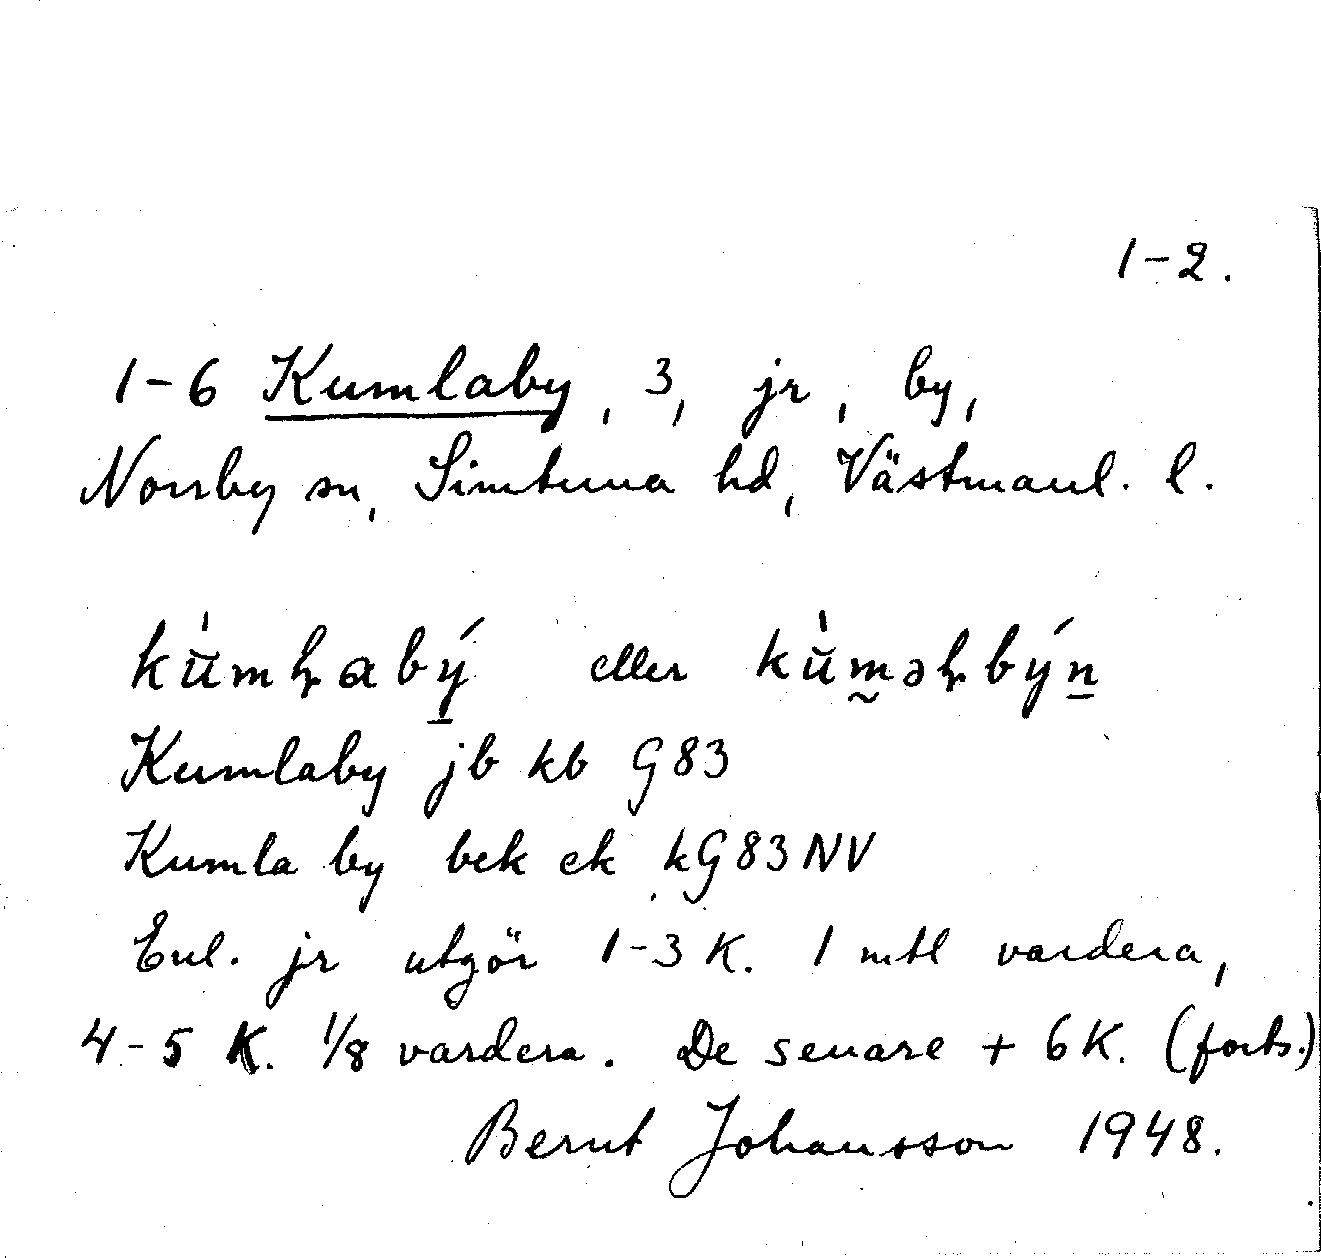 1-2.
1-6 Kumlaby, 3, jr, by,
Norrby sn, Simtuna hd, Västmanl. l.
eller
Kumlaby jb kb G83
Kumla by bek ek kG83NV
Enl. jr utgör 1-3 K. 1 mtl vardera,
4-5 K. 1/8 vardera. De senare + 6 K. (forts.)
Bernt Johansson 1948.